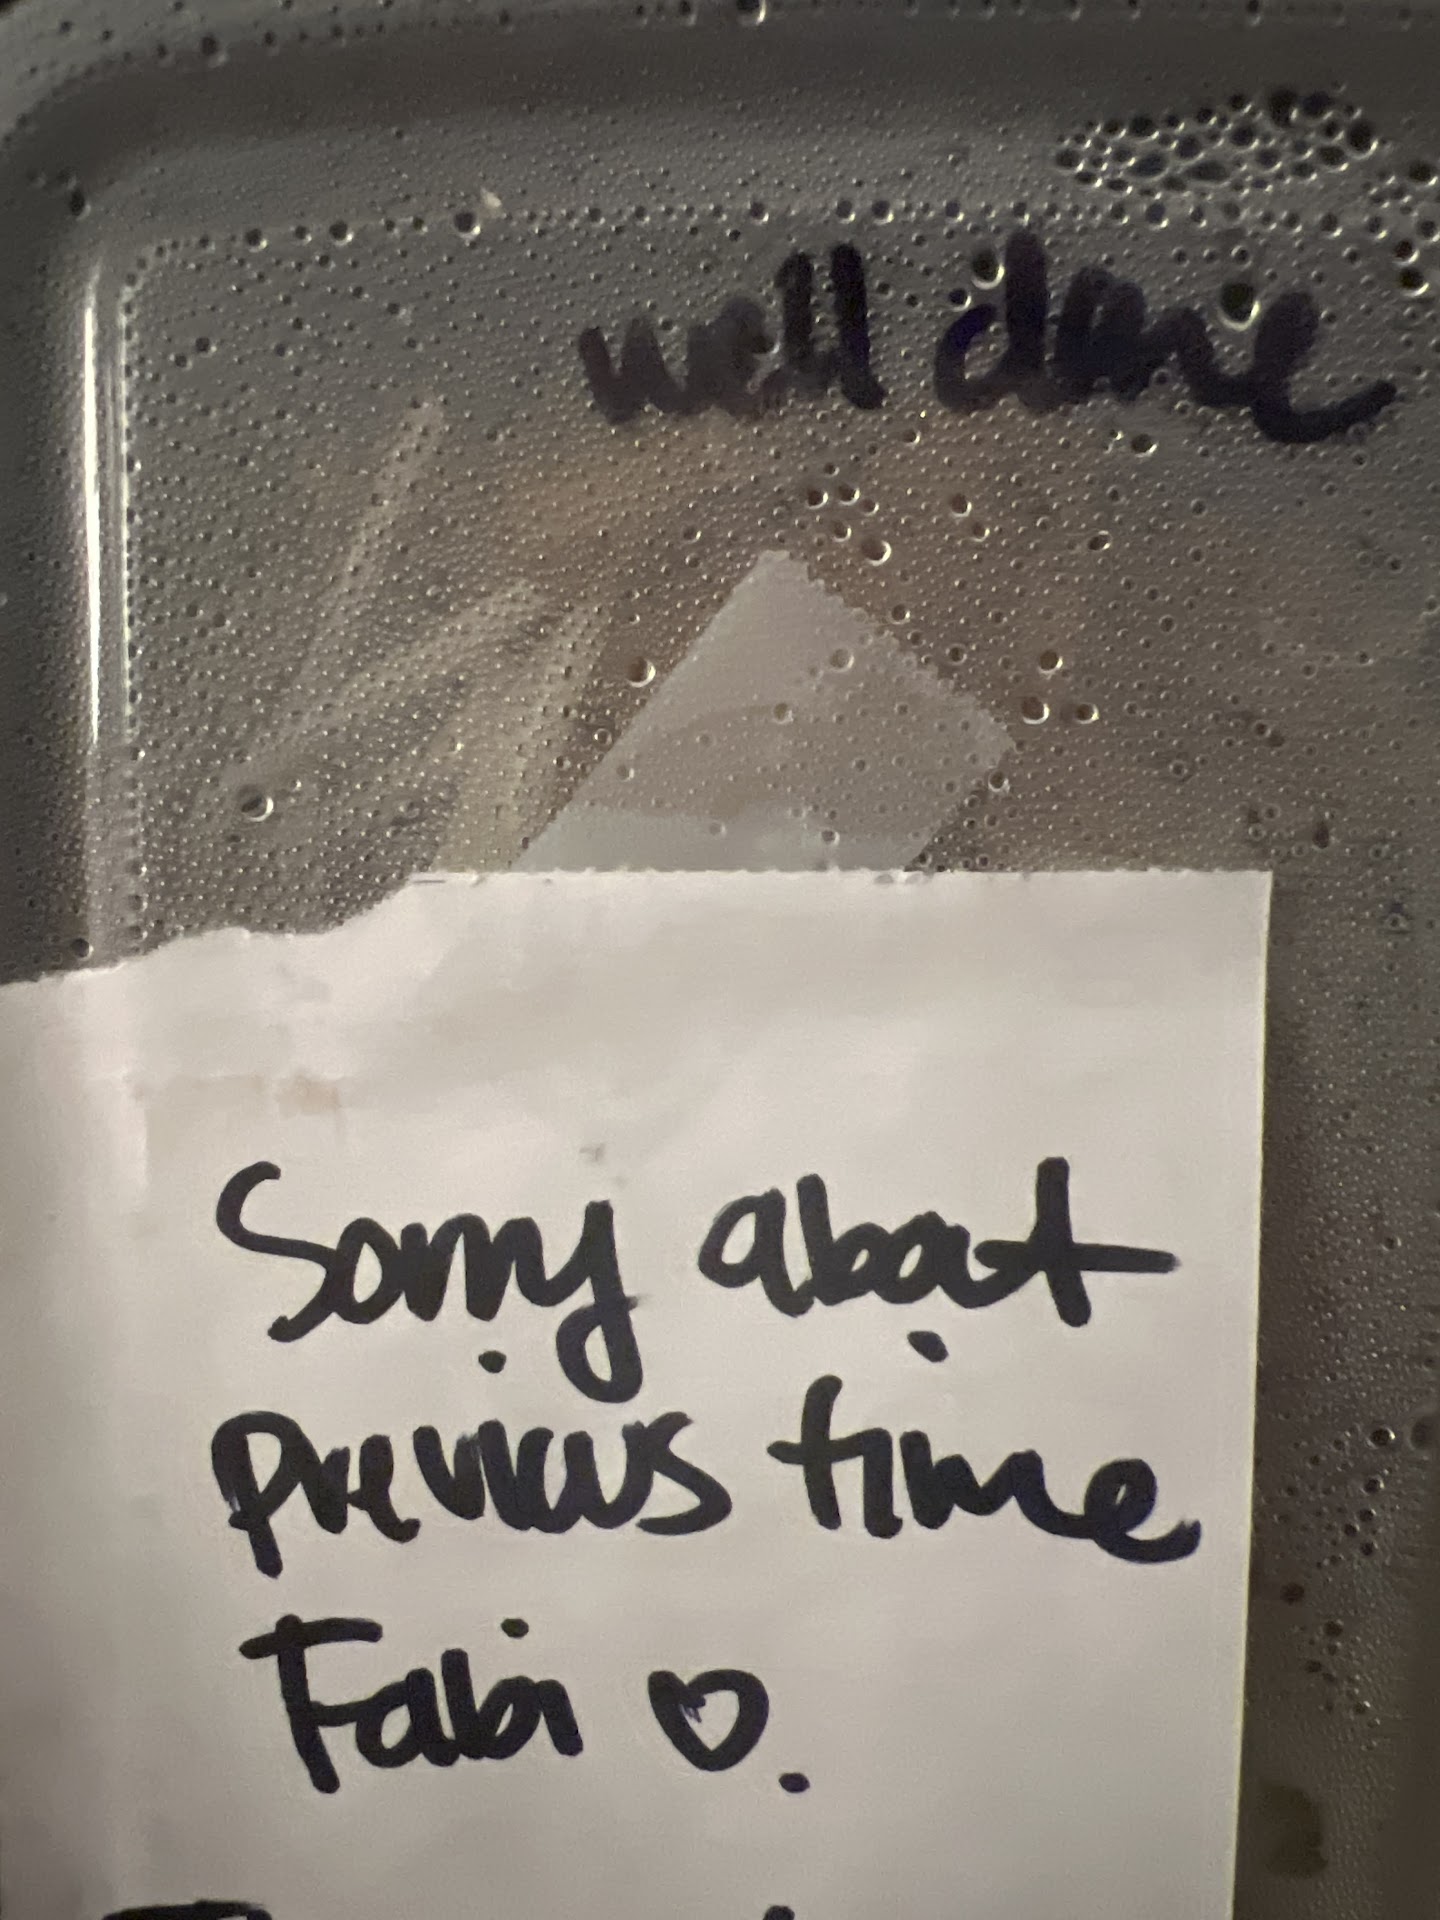 well done
Sorry about
previous time
Fabi ♡.